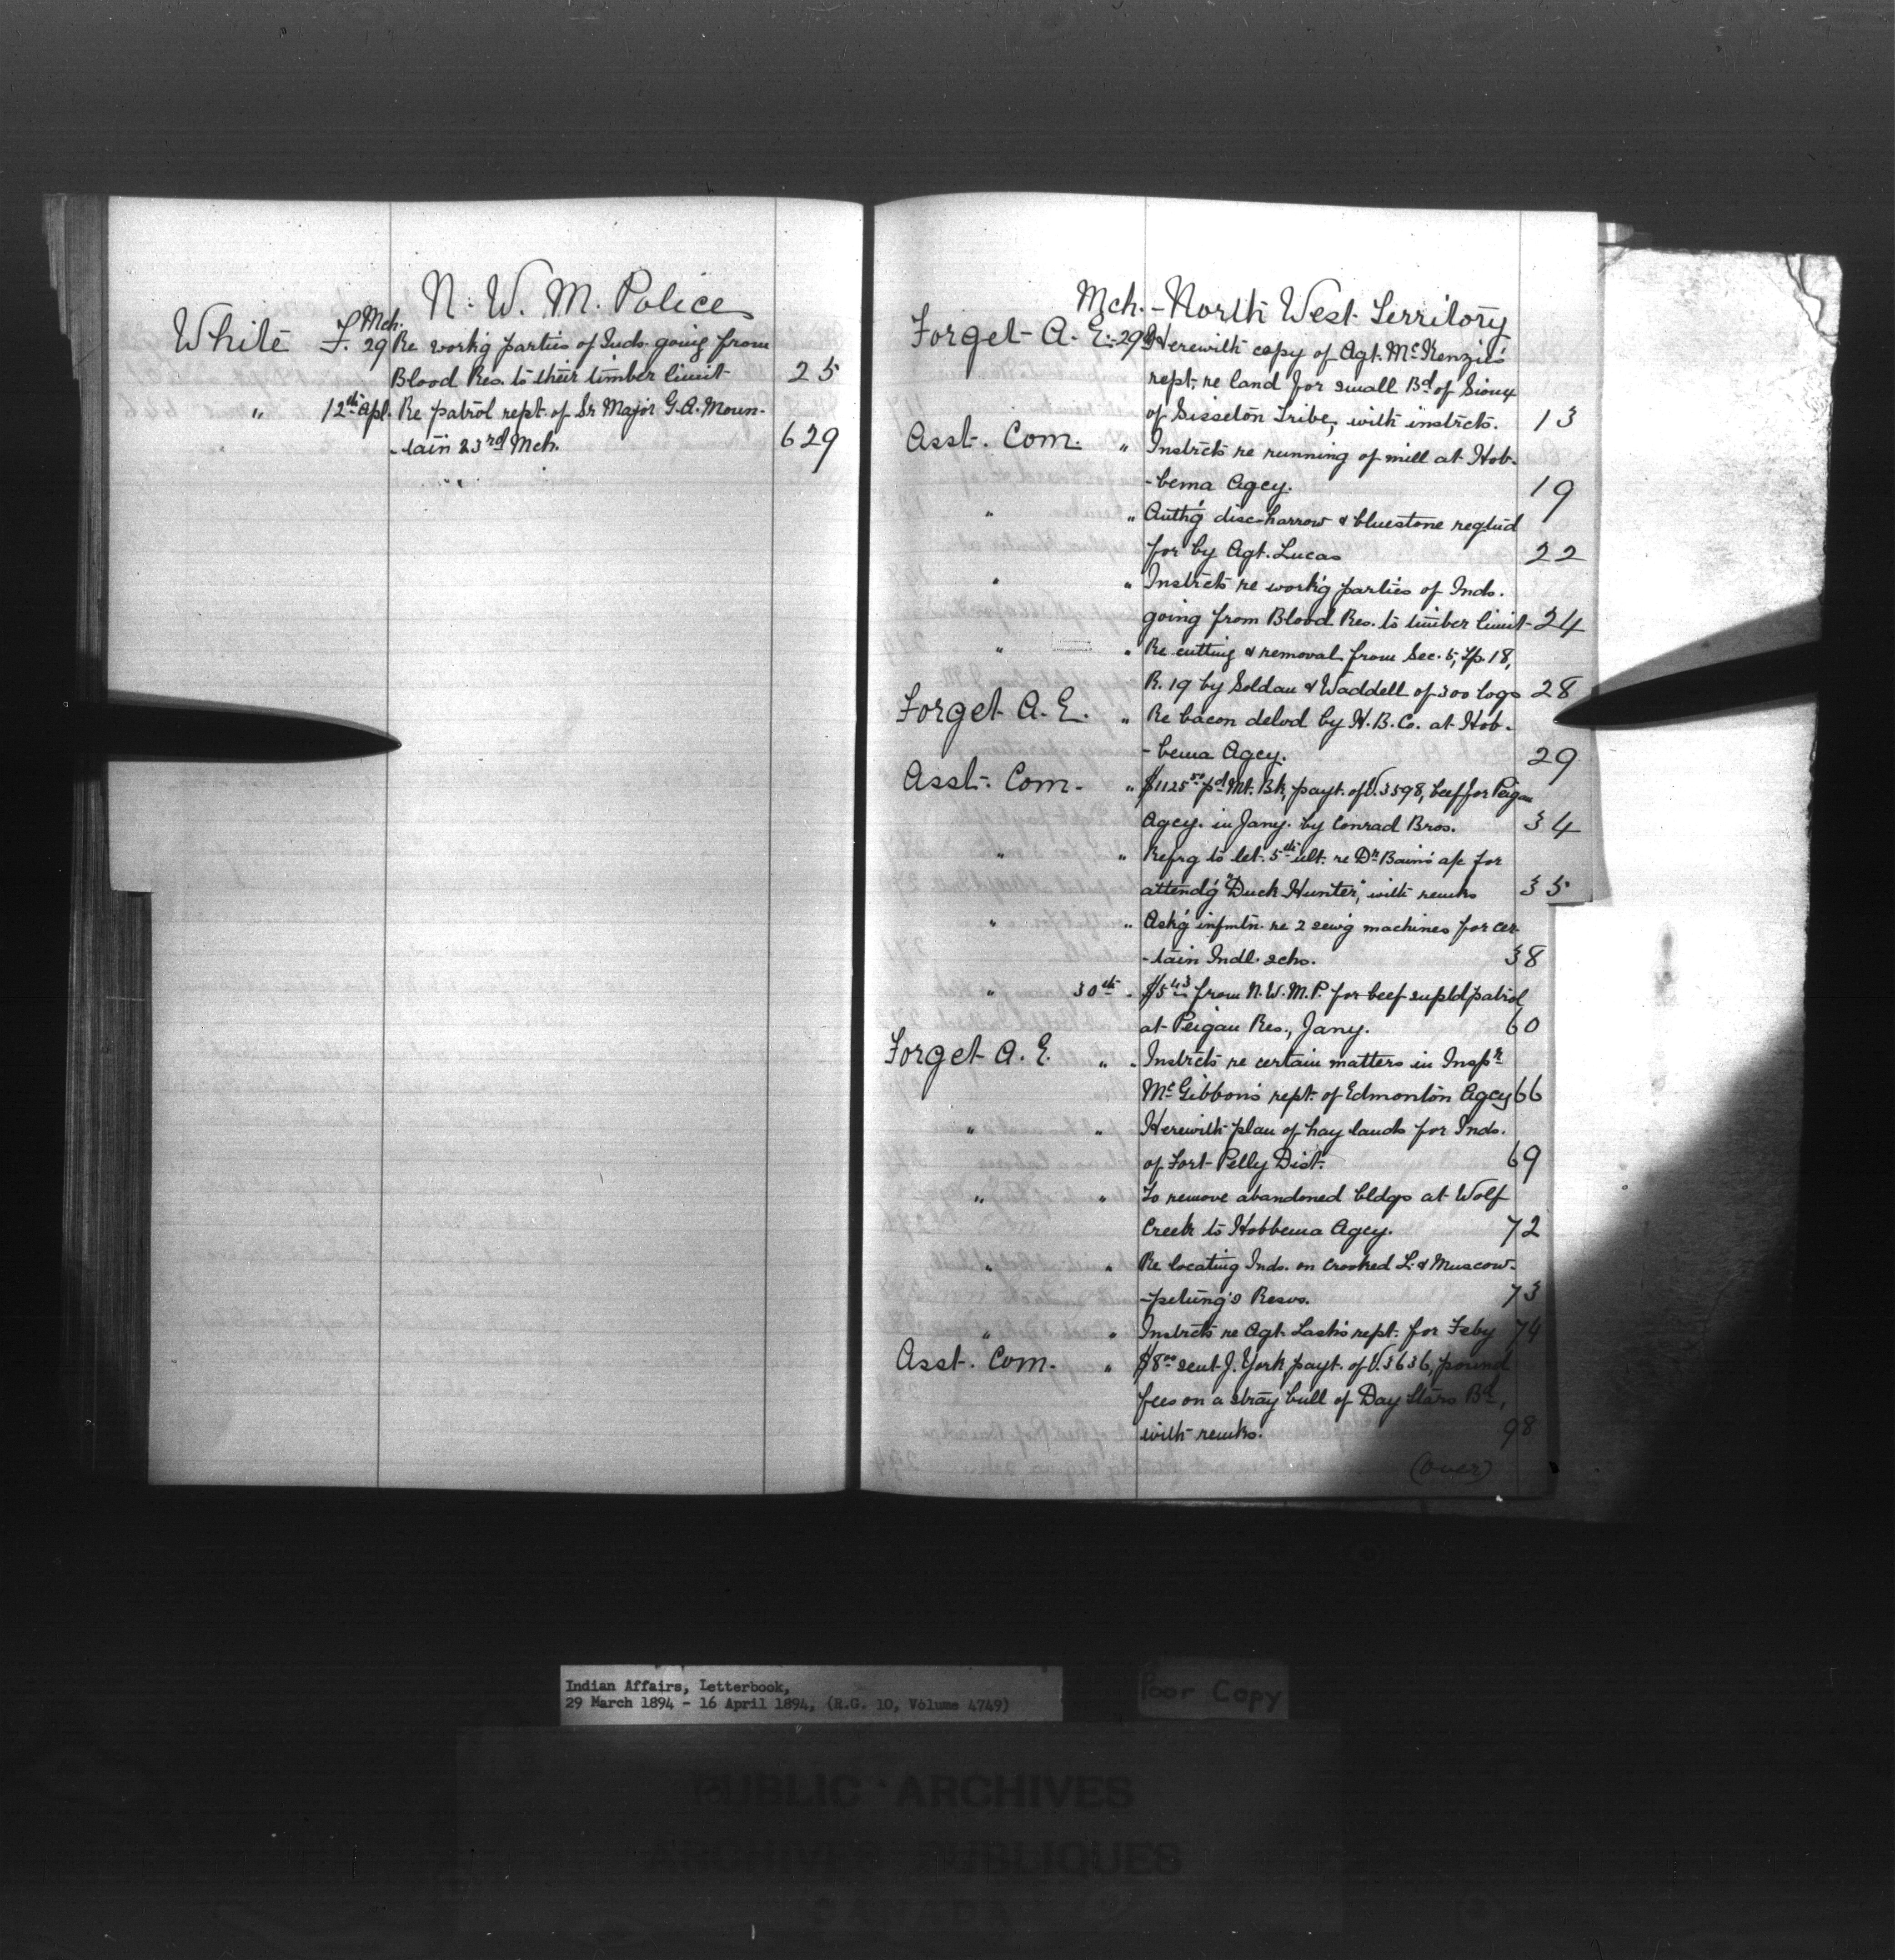 N. W. M. Police
White F. Mch. 29 Re work'g parties of Inds. going from
Blood Res. to their timber limit 25
" 12th Apl. Re patrol rept. of Sr Major G. A. Moun-
-tain 23rd Mch. 629
Mch. - North West Territory
Forget A. E. - 29 Herewith copy of Agt. McKenzie's
rept. re land for small Bd of Sioux
of Sisseton Tribe, with instrcts. 13
Asst. Com. " Instrcts re running of mill at Hob-
-bema Agcy. 19
" " Auth'g disc-harrow & bluestone reqtnd
for by Agt. Lucas 22
" " Instrcts re work'g parties of Inds.
going from Blood Res. to timber limit 24
" " Re cutting & removal from Sec. 5, Tp. 18,
R. 19 by Soldau & Waddell of 300 logs 28
Forget A. E. " Re bacon delvd by H. B. Co. at Hob-
-bema Agcy. 29
Asst. Com. " $1125 50 pd Mt. Bk, payt. of V. 3598, beef for Peigan
Agcy. in Jany. by Conrad Bros. 34
" " Refrg to let. 5th ult. re Dr Bain's a/c for
attend'g "Duck Hunter", with remks 35
" " Ask'g infmtn. re 2 sew'g machines for cer-
-tain Indl. schs. 38
" 30th - $5 43 from N. W. M. P. for beef supld patrol
at Peigan Res., Jany. 60
Forget A. E. " - Instrcts re certain matters in Inspr
McGibbon's rept. of Edmonton Agcy 66
" " Herewith plan of hay lands for Inds.
of Fort Pelly Dist. 69
" " To remove abandoned bldgs at Wolf
Creek to Hobbema Agcy. 72
" " Re locating Inds. on Crooked L. & Muscow-
-petung's Resvs. 73
" " Instrcts re Agt. Lash's rept. for Feby 74
Asst. Com. " $8 00 sent J. York payt. of V. 3636, pound
fees on a stray bull of Day Stars Bd,
with remks. 98
(Over)
Indian Affairs, Letterbook,
29 March 1894 - 16 April 1894, (R.G. 10, Volume 4749)
Poor Copy
PUBLIC ARCHIVES
ARCHIVES PUBLIQUES
CANADA